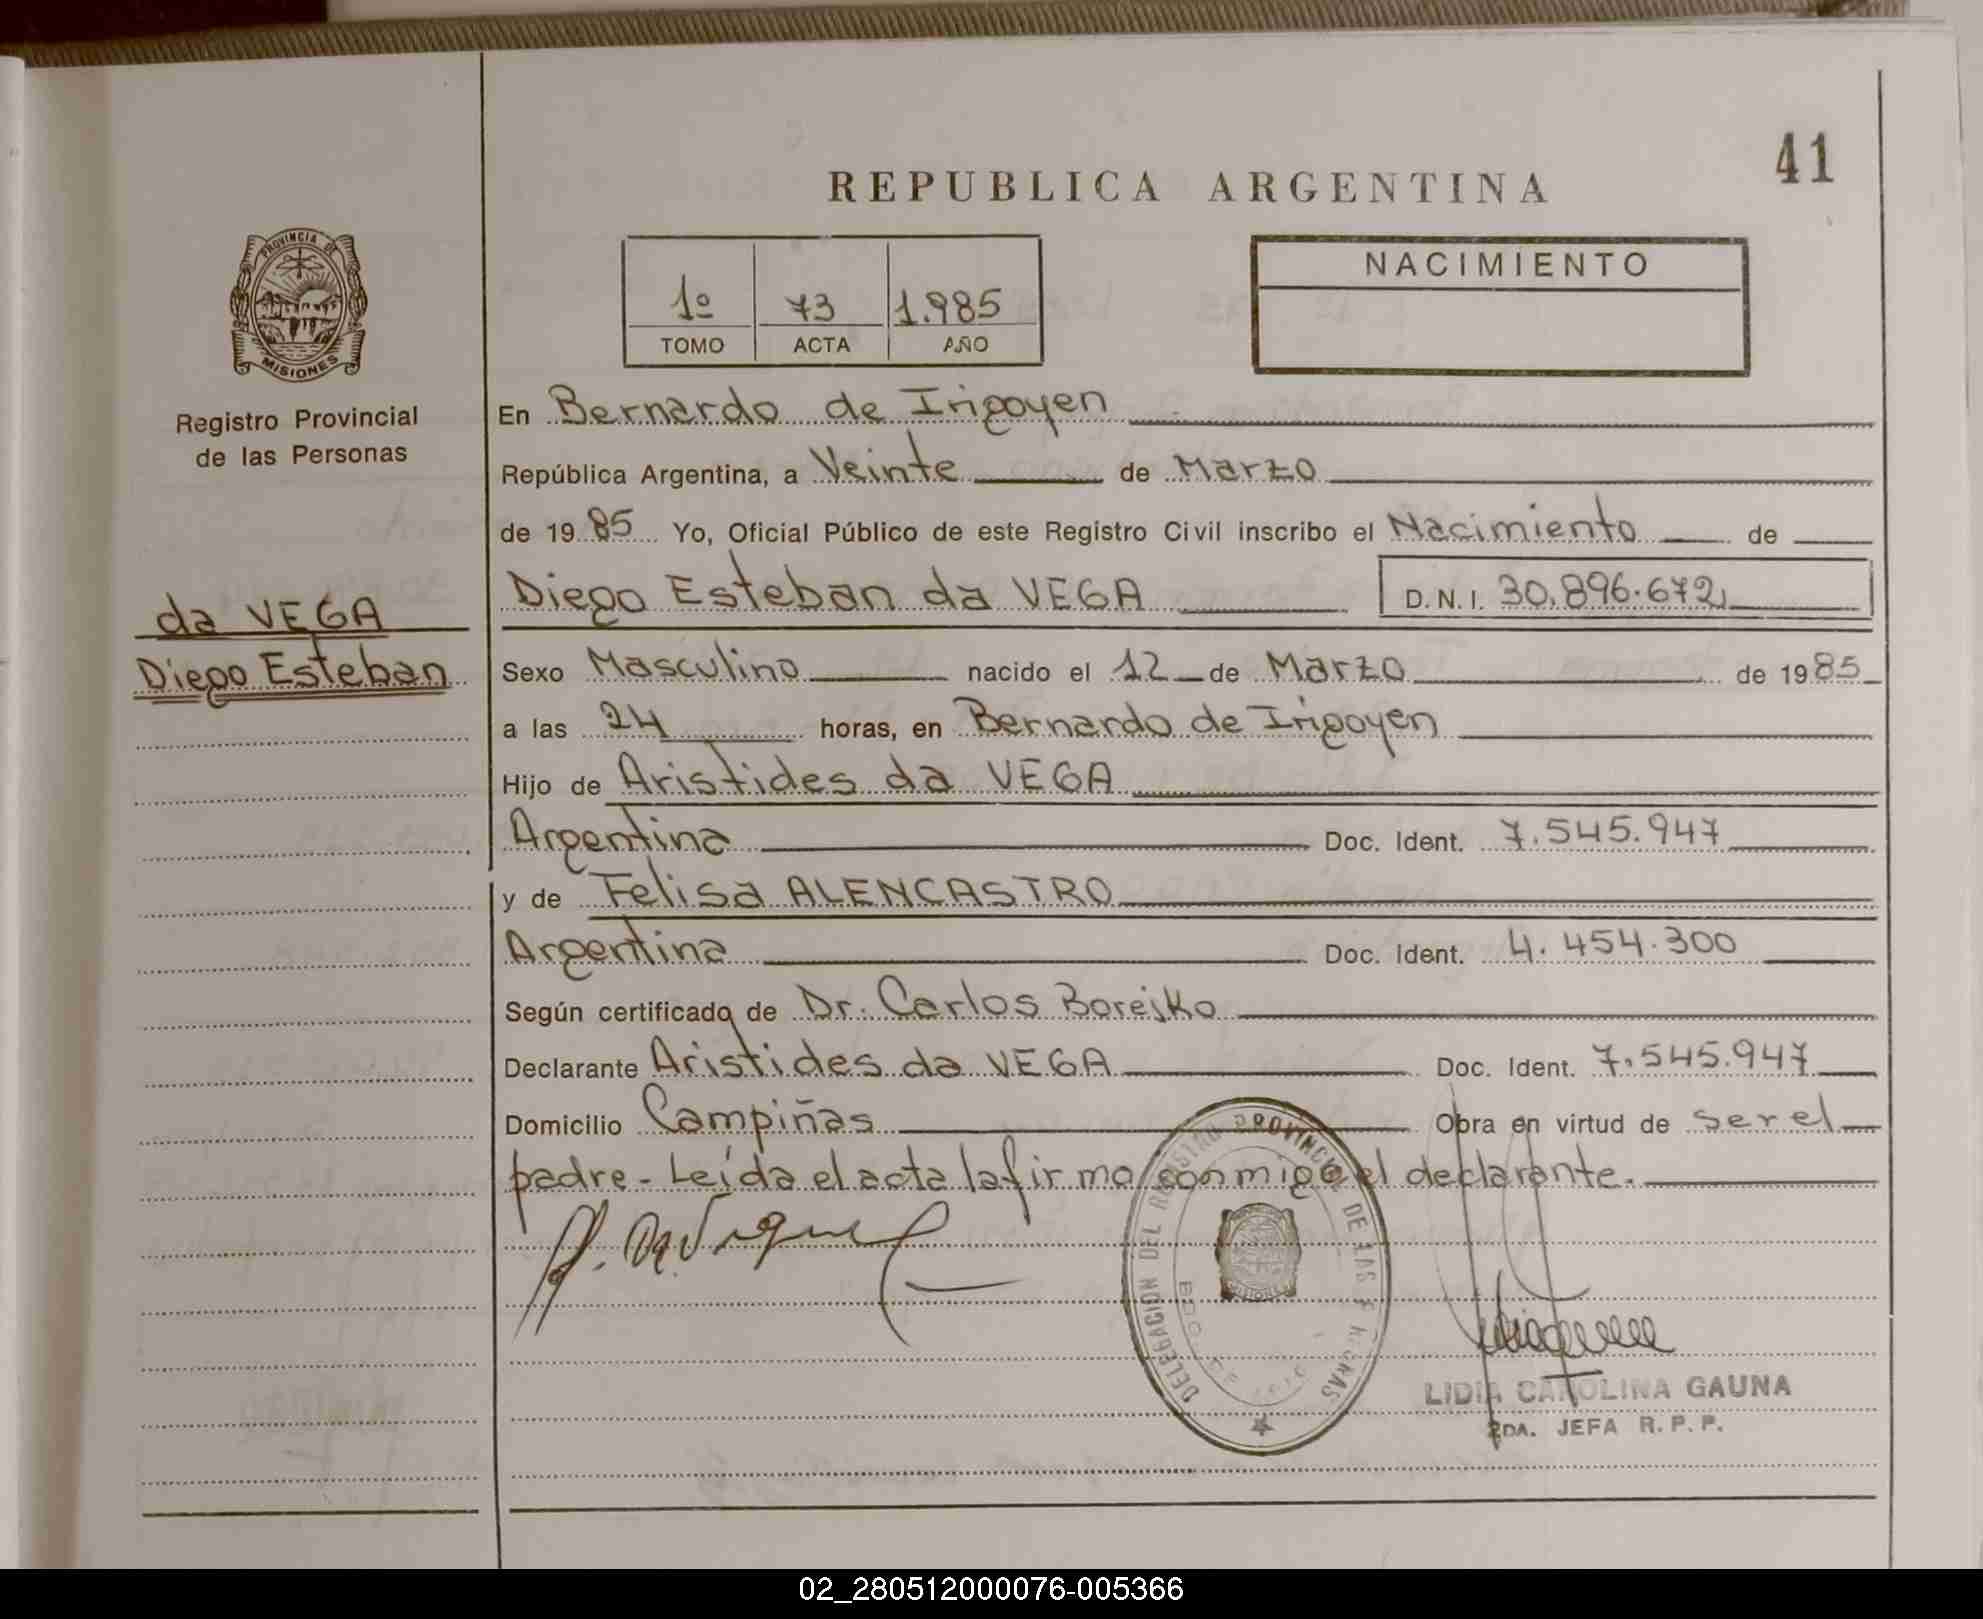 41
REPUBLICA ARGENTINA
PROVINCIA DE
MISIONES
Registro Provincial
de las Personas
1º 73 1.985
TOMO ACTA AÑO
NACIMIENTO
da VEGA
Diego Esteban
En Bernardo de Irigoyen
República Argentina, a Veinte de Marzo
de 1985 Yo, Oficial Público de este Registro Civil inscribo el Nacimiento de
Diego Esteban da VEGA D.N.I. 30.896.672
Sexo Masculino nacido el 12 de Marzo de 1985
a las 24 horas, en Bernardo de Irigoyen
Hijo de Aristides da VEGA
Argentina Doc. Ident. 7.545.947
y de Felisa ALENCASTRO
Argentina Doc. Ident. 4.454.300
Según certificado de Dr. Carlos Borejko
Declarante Aristides da VEGA Doc. Ident. 7.545.947
Domicilio Campiñas Obra en virtud de ser el
padre - Leída el acta la firma conmigo el declarante.
DELEGACION DEL REGISTRO PROVINCIAL DE LAS PERSONAS
MISIONES
LIDIA CAROLINA GAUNA
2DA. JEFA R.P.P.
02_280512000076-005366